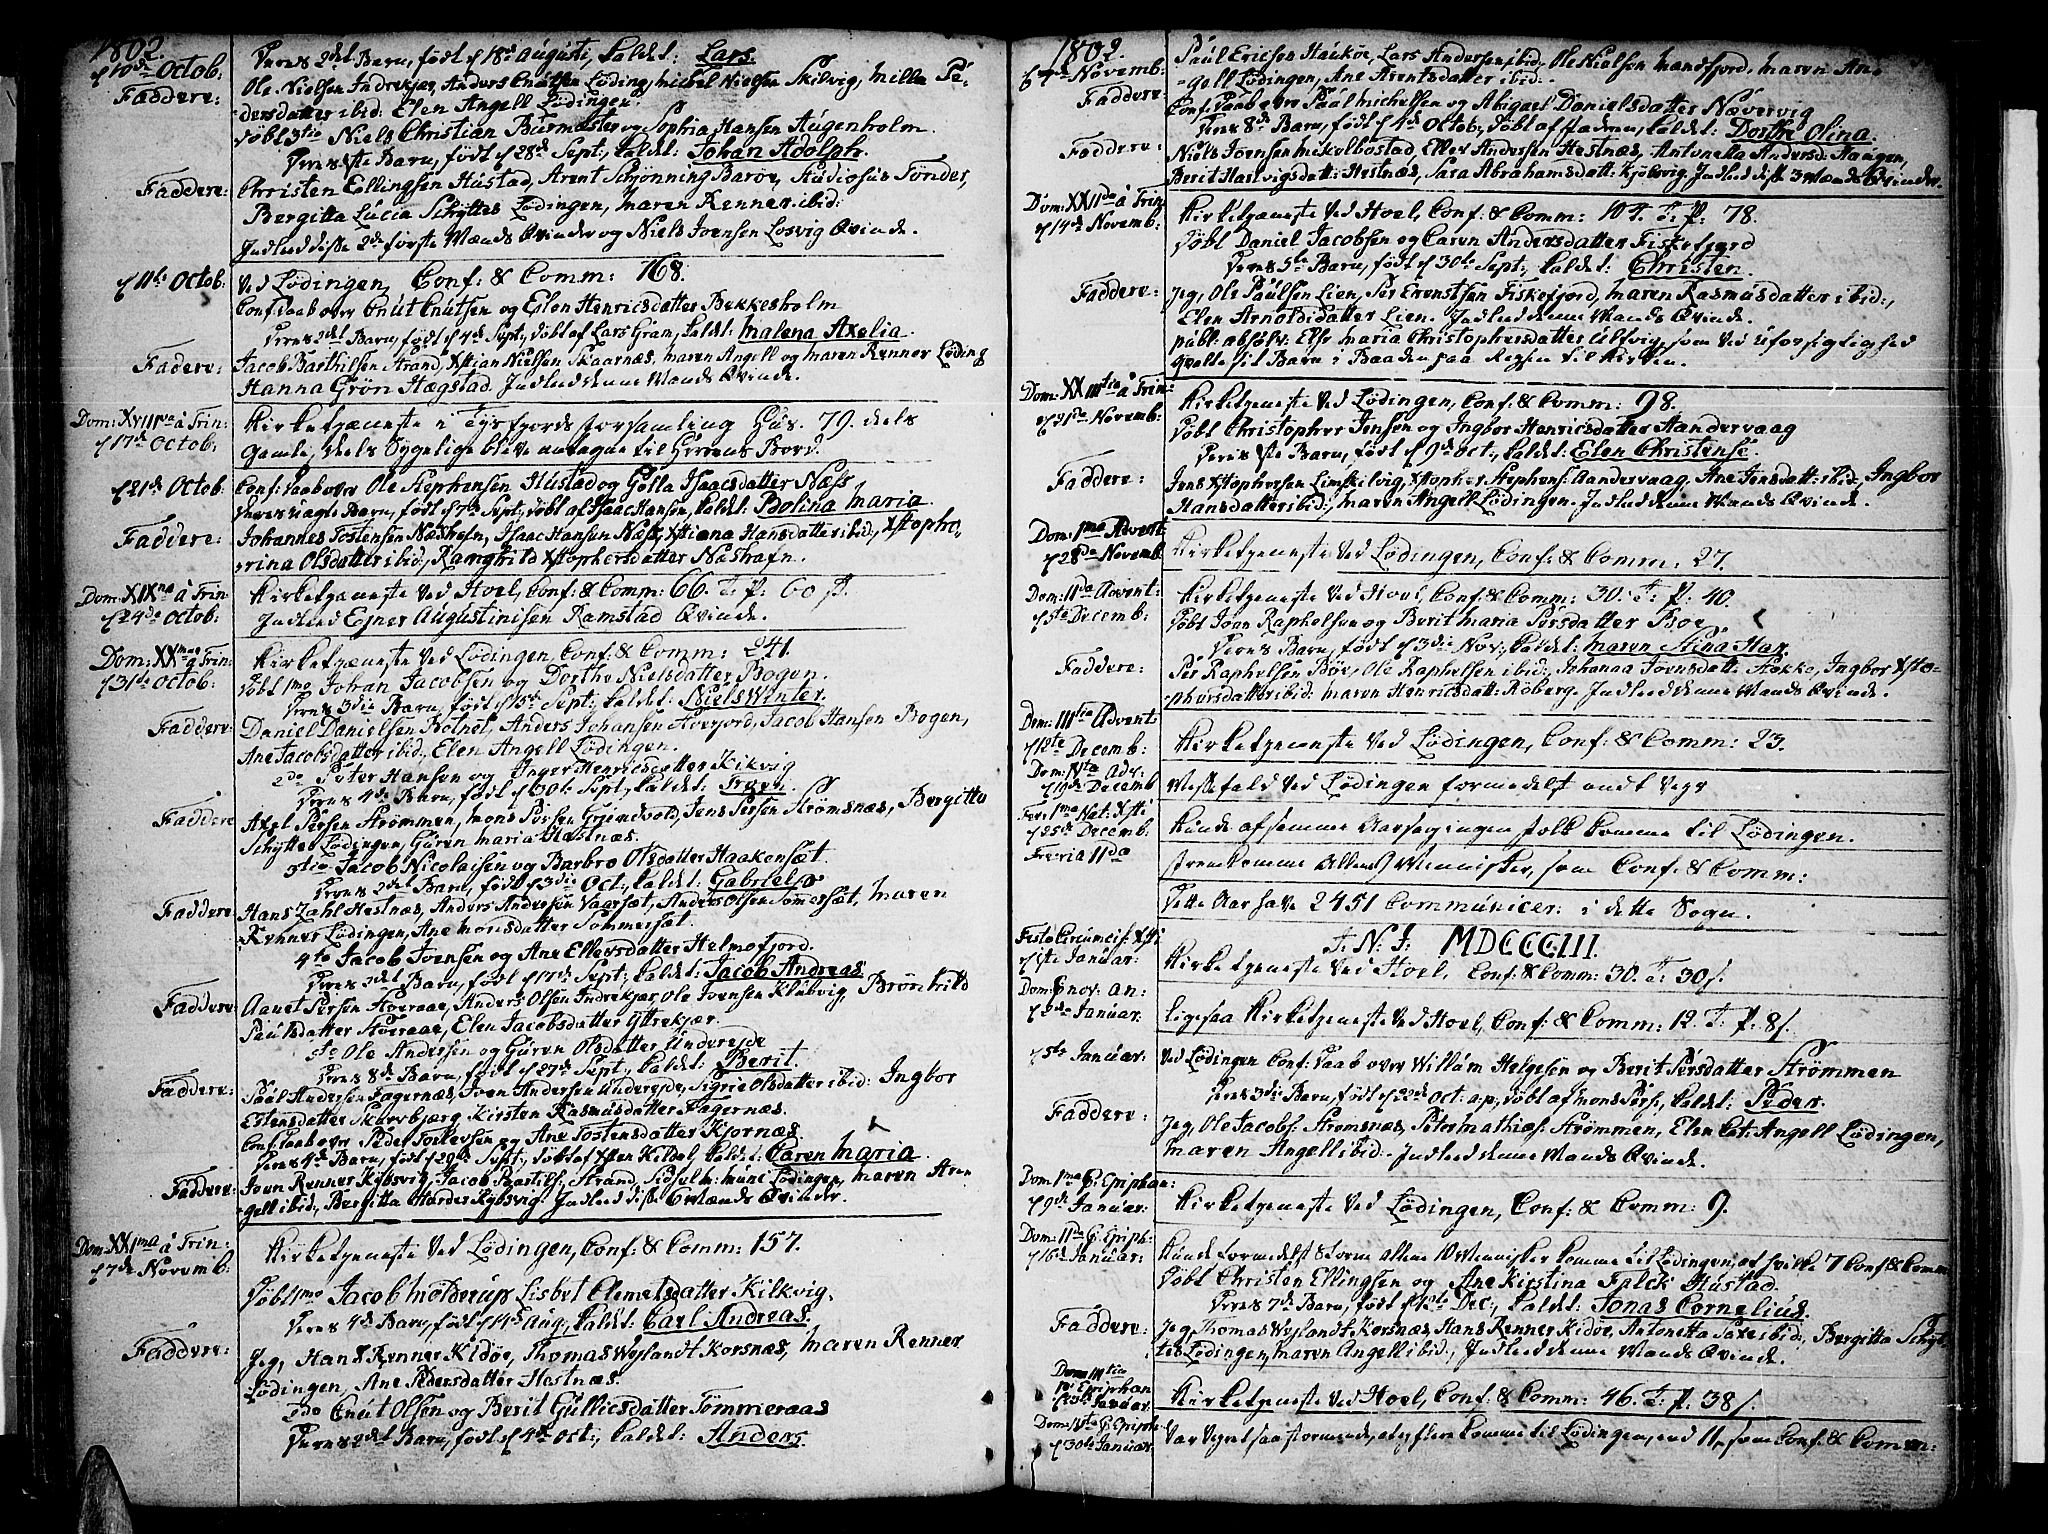 1802.
d 10de Octob:
Deres 2det Barn, født d 18de Augusti, kaldet: Lars.
Faddere: Ole Nielsen Indrekjær, Anders Cnutsen Løding, Mikel Nielsen Skilvig, Milla Pe-
dersdatter ibid: Elen Angell Lødingen.
døbt 3tio Niels Christian Burmester og Sophia Hansen Augenholm
Deres 1ste Barn, født d 28de Sept:, kaldet: Johan Adolph.
Faddere: Christen Ellingsen Hustad, Arent Schjønning Barøe, Audiosus Tønder,
Bergitta Lucia Schyttes Lødingen, Maren Renner ibid:
Indled disse 2de første Mænds Qvinder og Niels Joensen Losvig Qvinde.
d 11te Octob: Ved Lødingen, Conf: & Comm: 168.
Conf: Daab over Cnut Cnutsen og Elen Henricsdatter Bekkesholm
Deres 2det Barn, født d 4de Sept:, døbt af Lars Gram, kaldet: Malena Axelia.
Fadere: Jacob Barthilsen Strand, Xstian Nielsen Skaarnæs, Maren Angell og Maren Renner Løding
Hanna Grøn Hægstad. Indled denne Mands Qvinde.
Dom: XVIIIva à Trin:
d 17de Octob:
Kirketjæneste i Tysfjords forsamling Hus. 79. deels
Gamle, deels Sygelige bleve antagne til Herrens Bord.
d 21de Octob: Conf: Daab over Ole Stephensen Hustad og Golla Isaacsdatter Næss
Deres uægte Barn, født d 7de Sept:, døbt af Isaac Hansen, kaldet: Bolina Maria.
Faddere: Johannes Tostensen Næshafn, Isaac Hansen Næss, Xstiana Hansdatter ibid:, Xstopho-
rina Olsdatter ibid:, Rangnild Xstophersdatter Næshafn.
Dom: XIXna à Trin
d 24de Octob:
Kirketjeneste ved Hoel, Conf: & Comm: 66. T: P: 60 ß.
Indled Ejner Augustinisen Ramstad Qvinde.
Dom: XXma à Trin:
d 31te Octob:
Kirketjæneste ved Lødingen, Conf: & Comm: 241.
døbt 1mo Johan Jacobsen og Dorthe Nielsdatter Bogen
Deres 3die Barn, født d 5de Sept:, kaldet: Niels Winter.
Faddere: Daniel Danielsen Botnet, Anders Johansen Hoerfjord, Jacob Hansen Bogen,
Ane Jacobsdatter ibid:, Elen Angell Lødingen.
2do Peter Hansen og Inger Henricsdatter Kikvig
Deres 4de Barn, født d 30te Sept:, kaldet:
Faddere Axel Persen Strømmen, Mons Persen Grjendvold, Jens Persen Strømsnæs, Bergitta
Schytte Lødingen, Guren Maria Hestnæs.
3tio Jacob Nicolaisen og Barbro Olsdatter Haakonsæt.
Deres 2det Barn, født d 3die Oct:, kaldet: Gabriel
Faddere Hans Zahl Hestnæs, Anders Andersen Vaarsæt, Anders Olsen Sommersæt, Maren
Renner Lødingen, Ane Monsdatter Sommersæt.
4to Jacob Joensen og Ane Ellersdatter Helmofjord.
Deres 3det Barn, født d 17de Sept:, kaldet: Jacob Andreas.
Faddere Aanet Persen Hoeraae, Anders Olsen Indrekjær, Ole Joensen Klubvig, Brønhild
Paulsdatter Hoeraae, Elen Jacobsdatter Ytrekjær.
5to Ole Andersen og Guren Olsdatter Undereide
Deres 8de Barn, født d 27de Sept:, kaldet: Berit.
Faddere: Paul Andersen Fagernæs, Iver Andersen Undereide, Sigrie Olsdatter ibid: Ingbor
Estensdatter Skarvbjærg, Kirsten Rasmusdatter Fagernæs.
Conf: Daab over Peder Torlevsen og Ane Tostensdatter Kjornæs.
Deres 4de Barn, født d 20de Sept:, døbt af Xsten Kildal, kaldet: Caren Maria.
Faddere: Joen Renner Kjøbsvig, Jacob Bartils: Strand, Maren An-
gell ibid:, Bergitta Harder Kjøbsvig. Indled disse 6 Mænds Qvinder.
Dom: XXIma à Trin:
d 7de Novemb:
Kirketjeneste ved Lødingen, Conf: & Comm: 157.
Døbt 1mo Jacob Molderup Lisbet Clemetsdatter Kilkvig.
Deres 4de Barn, født d 14de Aug:, kaldet: Carl Andreas.
Faddere: Jeg, Hans Renner Kidøe, Thomas Weylandt Korsnæs, Maren Renner
Lødingen, Ane Pedersdatter Hestnæs.
2do Cnut Olsen og Berit Gulliesdatter Tømmeraas
Deres 2det Barn, født d 4de Oct:, kaldet: Anders.
1802.
d 7de Novemb:
Faddere: Paul Ericsen Haukøe, Lars Andersen ibid:, Ole Nielsen Mandfjord, Maren An-
gell Lødingen, Ane Arentsdatter ibid:
Conf: Daab over Paul Michelsen og Abigael Danielsdatter Nævervig
Deres 8de Barn, født d 4de Octob:, døbt af Faderen, kaldet: Dorthe Olina.
Faddere: Niels Joensen Mikelbostad, Eller Andersen Hestnæs, Antonetta Andersd: Haugen,
Berit Hartvigsdatt: Hestnæs, Sara Abrahamsdatt: Kjøbvig. Indled disse 3 Mænds Qvinder.
Dom: XXIIda à Trin
d 14de Novemb:
Kirketjæneste ved Hoel, Conf: & Comm: 107. T: P: 78.
døbt Daniel Jacobsen og Caren Andersdatter Fiskefjord
Deres 5te Barn, født d 30te Sept:, kaldet: Christen.
Faddere: Jeg, Ole Paulsen Lien, Per Erentsen Fiskefjord, Maren Rasmusdatter ibid:,
Elen Arnoldsdatter Lien. Indled denne Mands Qvinde.
publ: absolv: Else Maria Christophersdatter Ulfvig, som ved Uforsigtighed
qvalte sit Barn i Baaden paa Rejsen til Kirken.
Dom: XXIIItia à Trin:
d 21de Novemb:
Kirketjeneste ved Lødingen, Conf: & Comm: 98.
døbt Christopher Jensen og Ingbor Henricsdatter Aandervaag
Deres 1ste Barn, født d 9de Oct:, kaldet: Elen Christense.
Faddere: Jens Xstophersen Limskilvig, Xstopher Stephens: Aandervaag, Ane Jensdatt: ibid:, Ingbor
Hansdatter ibid:, Maren Angell Lødingen. Indled denne Mands Qvinde.
Dom: 1ma Advent
d 28de Novemb:
Kirketjeneste ved Lødingen, Conf: & Comm: 27.
Dom: IIda Advent:
d 5te Decemb:
Kirketjeneste ved Hoel, Conf: & Comm: 30. T: P: 40.
døbt Joen Raphelsen og Berit Maria Persdatter Boe,
Deres Barn, født d 3die Nov:, kaldet: Maren Stina Han.
Faddere: Per Raphelsen Bøe, Ole Raphelsen ibid:, Johanaa Joensdatt: Ingbor Xsto-
phersdatter ibid: Maren Henricsdatt: Roberg. Indled denne Mands Qvinde.
Dom: IIItia Advent
d 12te Decemb:
Kirketjeneste ved Lødingen, Conf: & Comm: 23.
Dom: IVta Adv:
d 19de Decemb
Messefald ved Lødingen formedelst ondt Vejr
Fer: 1ma Nat: Xsti
d 25de Decemb:
Kunde af samme Aarsag ingen folk komme til Lødingen.
Feria IIda
fremkomme allene Mennisker, som Conf: & Comm:
Dette Aar have 2451 Communicer: i dette Sogn.
I. N. J: MDCCCIII.
Festo Circumcis: Xsti
d 1ste Januar:
Kirketjeneste ved Hoel, Conf: & Comm: 30. T: 30 ß.
Dom: p nov: an:
d 2den Januar:
Ligesaa Kirketjeneste ved Hoel, Conf: & Comm: 12. T: P: 8 ß.
d 5te Januar: Ved Lødingen Conf: Daab over Willum Helgesen og Berit Persdatter Strømmen
Deres 3die Barn, født d 22de Oct: a.p:, døbt af Mons Pers:, kaldet: Peder.
Faddere: Jeg, Ole Jacobs: Strømsnæs, Peter Mathias: Strømmen, Elen Cat: Angell Lødingen,
Maren Angell ibid. Indled denne Mands Qvinde.
Dom: 1ma p: Epiphan:
d 9de Januar:
Kirketjeneste ved Lødingen, Conf: & Comm: 9.
Dom: IIda p: Epiph:
d 16de Januar:
Kunde formedelst Storm allene 10 Mennisker komme til Lødingen, af hvilke 7 Conf & Comm
Døbt Christen Ellingsen og Ane Kirstina Falck Hustad.
Deres 7de Barn, født d Dec:, kaldet: Jonas Cornelius.
Faddere: Jeg, Thomas Weylandt Korsnæs, Hans Renner Kidøe, Antonetta Saxe ibid:, Bergitta Schyt-
tes Lødingen, Maren Angell ibid:, Indled denne Mands Qvinde.
Dom: IIItia
p: Epiphan
d 23de Januar:
Kirketjeneste ved Hoel, Conf: & Comm: 46. T: P: 38 ß.
Dom: IVta p: Epiph:
d 30te Januar:
Var Vejret saa stormende, at ej flere komme til Lødingen, end 11, som Conf: & Comm: